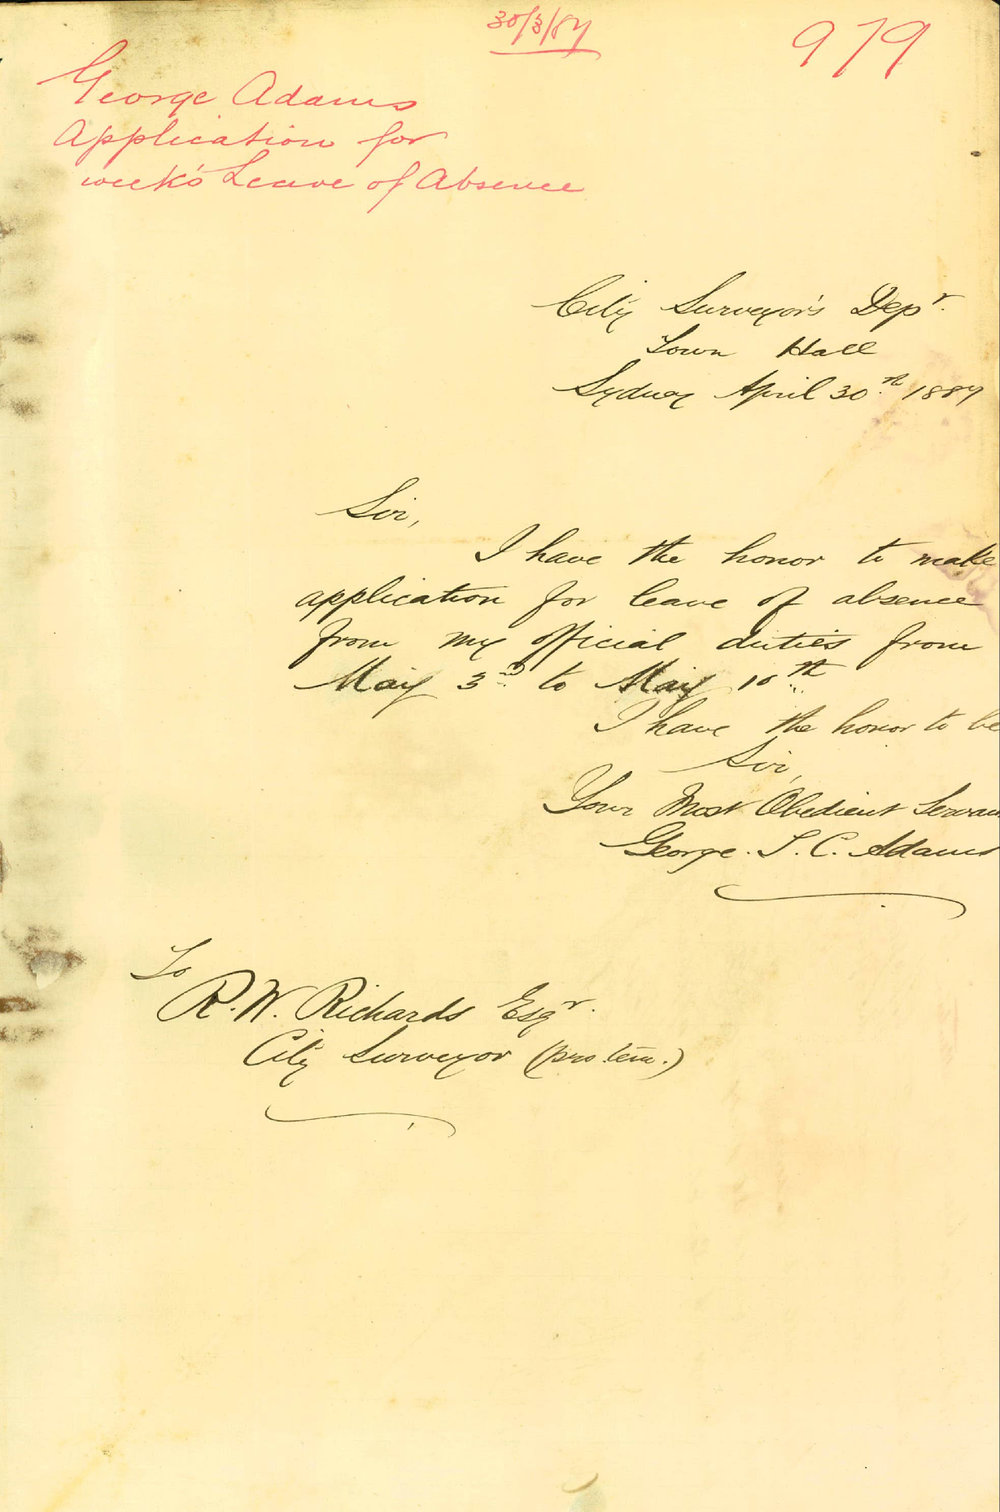 30/3/87
979
George Adams
Application for
week's Leave of Absence
City Surveyor's Depr.
Town Hall
Sydney April 30th 1887
Sir,
I have the honor to make
application for leave of absence
from my official duties from
May 3rd to May 10th
I have the honor to be
Sir,
Your Most Obedient Servan
George. S. C. Adams
To
R. W. Richards Esqr.
City Surveyor (pro tem.)